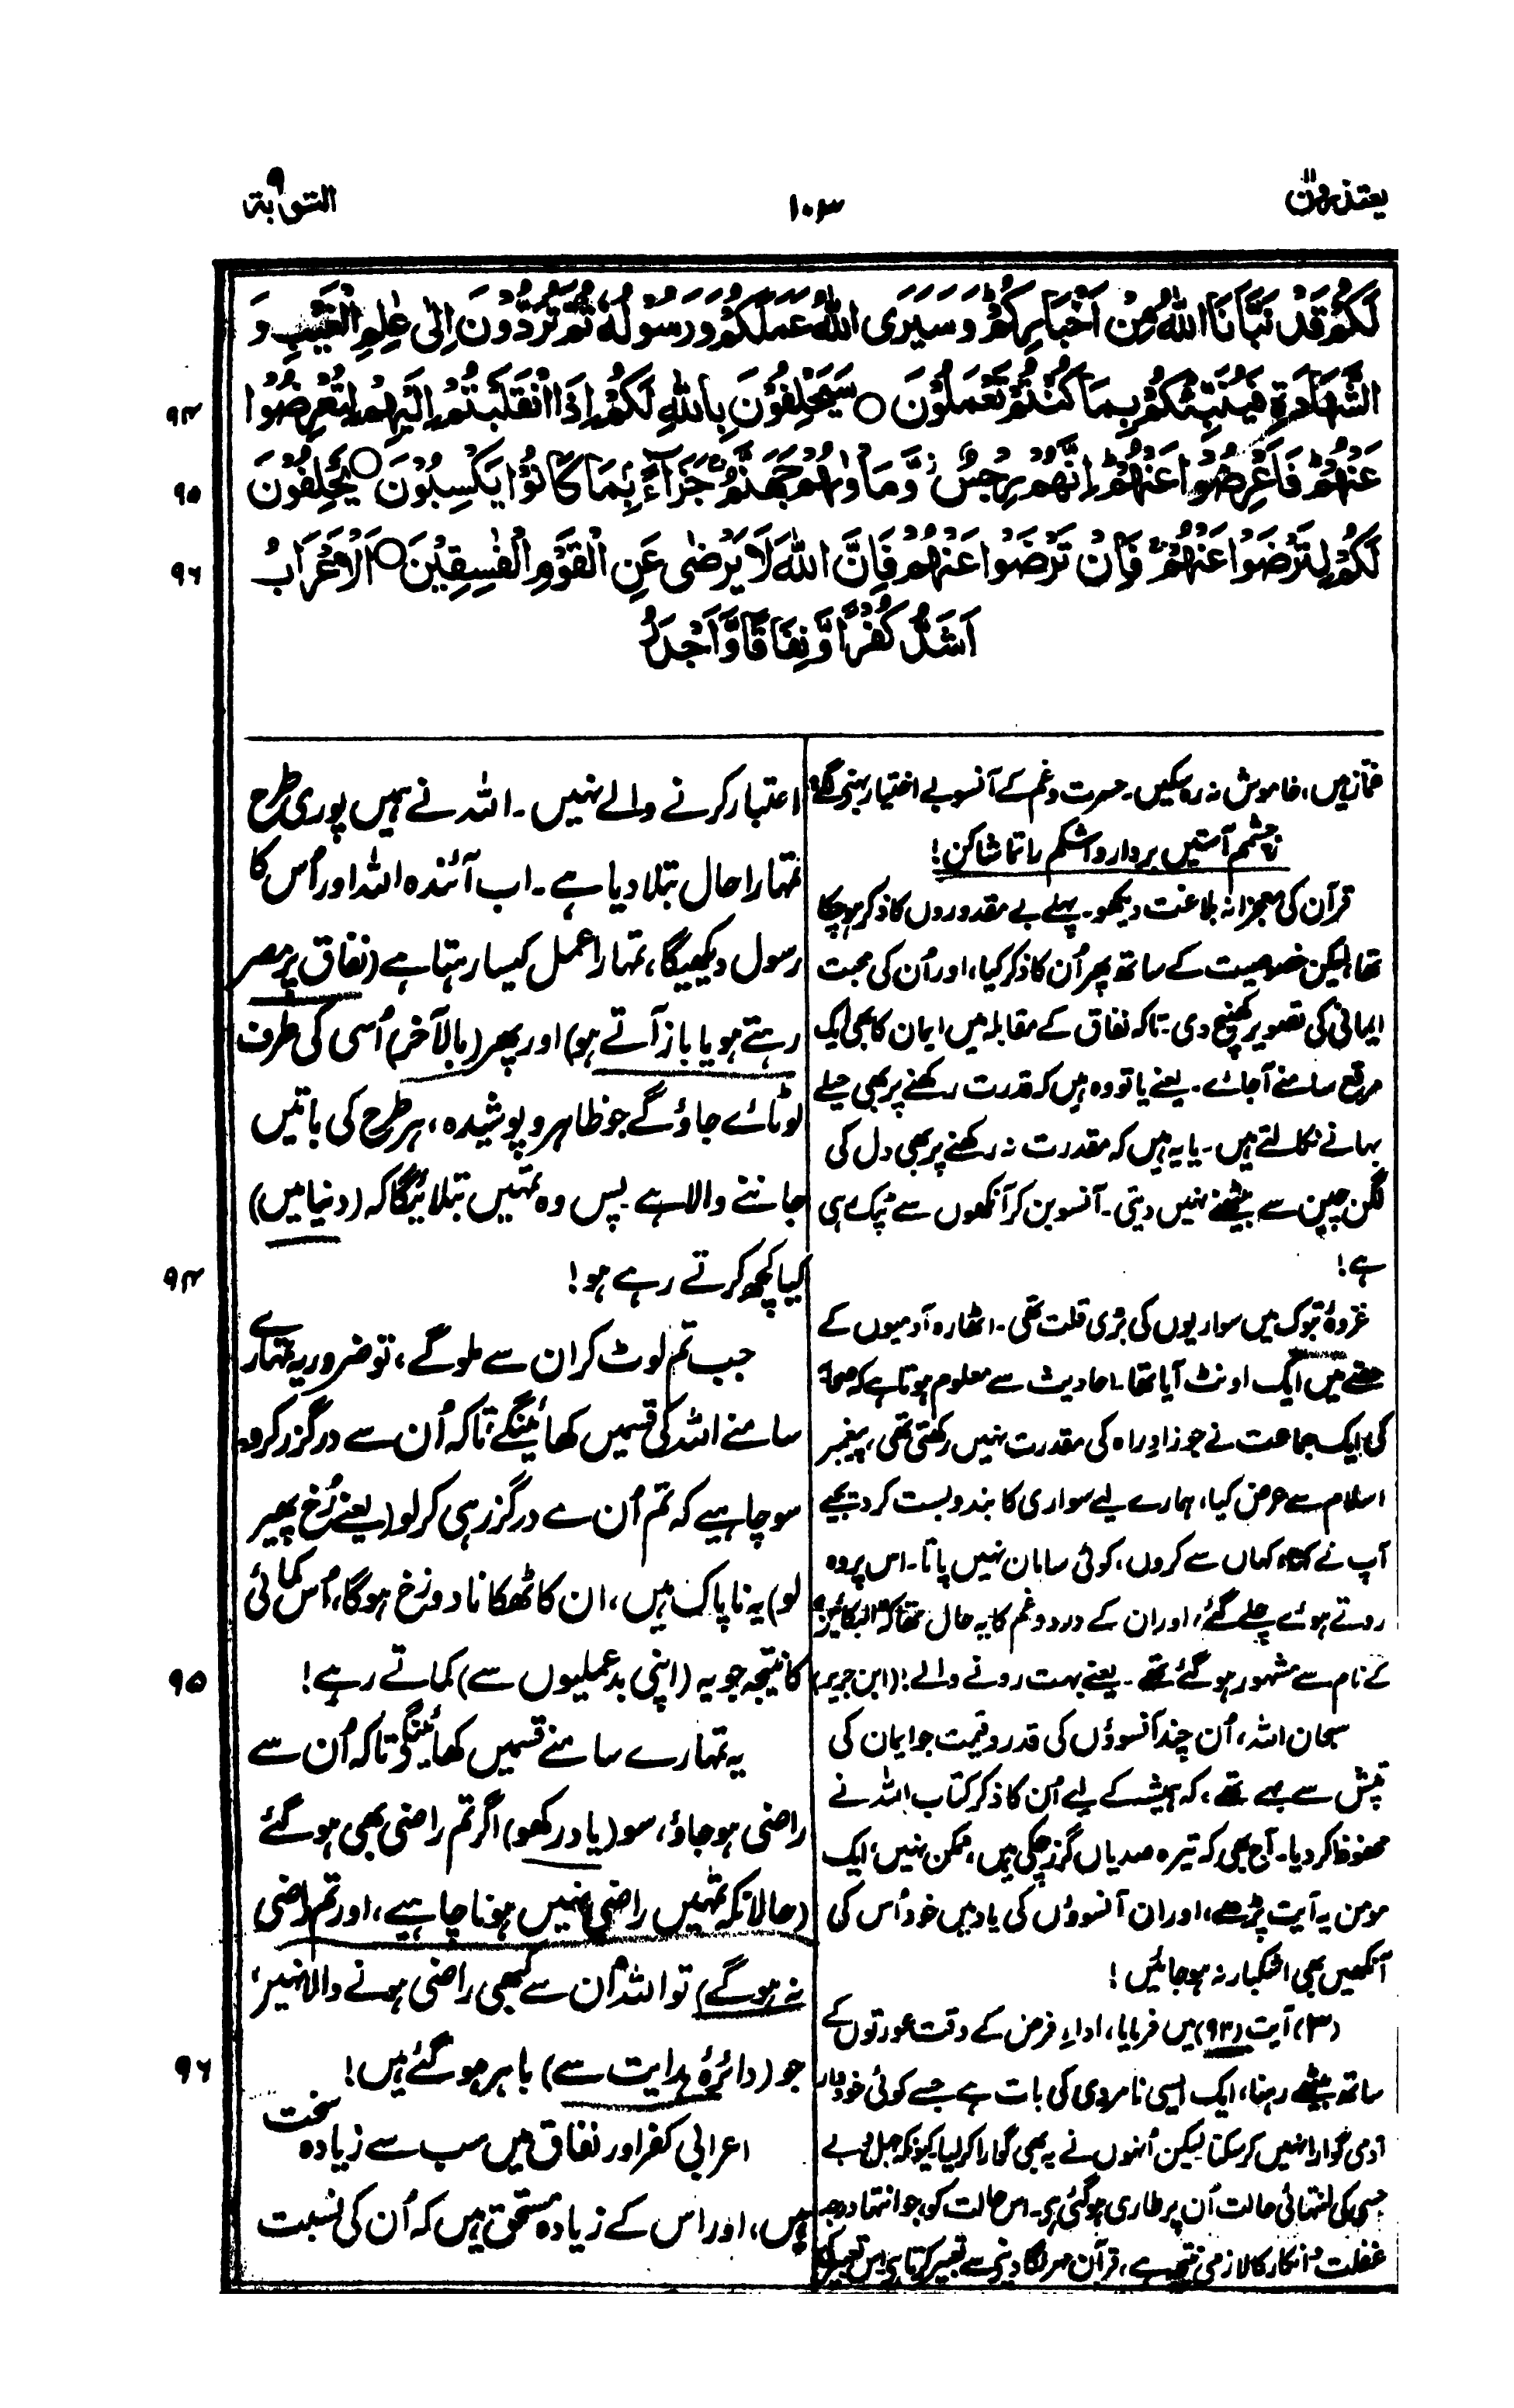 یعتذرون ۱۱
۱۰۳
التوبۃ ۹
لَكُمْ قَدْ نَبَّاَنَا اللّٰهُ مِنْ اَخْبَارِكُمْ ؕ وَ سَیَرَى اللّٰهُ عَمَلَكُمْ وَ رَسُوْلُهٗ ثُمَّ تُرَدُّوْنَ اِلٰى عٰلِمِ الْغَیْبِ وَ
الشَّهَادَةِ فَیُنَبِّئُكُمْ بِمَا كُنْتُمْ تَعْمَلُوْنَ ○ سَیَحْلِفُوْنَ بِاللّٰهِ لَكُمْ اِذَا انْقَلَبْتُمْ اِلَیْهِمْ لِتُعْرِضُوْا
۹۴
عَنْهُمْ ؕ فَاَعْرِضُوْا عَنْهُمْ ؕ اِنَّهُمْ رِجْسٌ ؗ وَّ مَاْوٰىهُمْ جَهَنَّمُ ۚ جَزَآءًۢ بِمَا كَانُوْا یَكْسِبُوْنَ ○ یَحْلِفُوْنَ
۹۵
لَكُمْ لِتَرْضَوْا عَنْهُمْ ۚ فَاِنْ تَرْضَوْا عَنْهُمْ فَاِنَّ اللّٰهَ لَا یَرْضٰى عَنِ الْقَوْمِ الْفٰسِقِیْنَ ○ اَلْاَعْرَابُ
۹۶
اَشَدُّ كُفْرًا وَّ نِفَاقًا وَّ اَجْدَرُ
غمازہیں، خاموش نہ رہ سکیں۔ حسرت و غم کے آنسو بے اختیار بہنے لگے
زچشمم آستیں بردار و اشکم را تماشا کن!
قرآن کی معجزانہ بلاغت دیکھو۔ پہلے بے مقدوروں کا ذکر ہو چکا
تھا، لیکن خصوصیت کے ساتھ پھر اُن کا ذکر کیا، اور اُن کی محبت
ایمانی کی تصویر کھینچ دی۔ تاکہ نفاق کے مقابلہ میں ایمان کا بھی ایک
مرقع سامنے آجائے۔ یعنے یا تو وہ ہیں کہ قدرت رکھنے پر بھی حیلے
بہانے نکالتے ہیں۔ یا یہ ہیں کہ مقدرت نہ رکھنے پر بھی دل کی
لگن چین سے بیٹھنے نہیں دیتی۔ آنسو بن کر آنکھوں سے ٹپک رہی
ہے!
غزوۂ تبوک میں سواریوں کی بڑی قلت تھی۔ اٹھارہ آدمیوں کے
حصے میں ایک اونٹ آیا تھا۔ احادیث سے معلوم ہوتا ہے کہ صحابہ
کی ایک جماعت نے جو زادِ راہ کی مقدرت نہیں رکھتی تھی، پیغمبر
اسلام سے عرض کیا، ہمارے لیے سواری کا بندوبست کر دیجیے
آپ نے کہا، کہاں سے کروں، کوئی سامان نہیں پاتا۔ اس پر وہ
روتے ہوئے چلے گئے، اور ان کے درد و غم کا یہ حال تھا کہ "البکائین"
کے نام سے مشہور ہو گئے تھے۔ یعنے بہت رونے والے! (ابن جریر)
سبحان اللہ، اُن چند آنسوؤں کی قدر و قیمت جو ایمان کی
تپش سے بہے تھے، کہ ہمیشہ کے لیے اُن کا ذکر کتاب اللہ نے
محفوظ کر دیا۔ آج بھی کہ تیرہ صدیاں گزر چکی ہیں، ممکن نہیں، ایک
مومن یہ آیت پڑھے، اور ان آنسوؤں کی یاد میں خود اُس کی
آنکھیں بھی اشکبار نہ ہو جائیں!
(۳) آیت (۹۳) میں فرمایا، ادایِ فرض کے وقت عورتوں کے
ساتھ بیٹھے رہنا، ایک ایسی نامردی کی بات ہے جسے کوئی خوددار
آدمی گوارا نہیں کر سکتا لیکن اُنہوں نے یہ بھی گوارا کر لیا کیونکہ جہل و بے
حسی کی انتہائی حالت اُن پر طاری ہو گئی ہے۔ اس حالت کو جو انتہا درجہ
غفلت و انکار کا لازمی نتیجہ ہے، قرآن مہر لگا دینے سے تعبیر کرتا ہے اس تعبیر کی
اعتبار کرنے والے نہیں۔ اللہ نے ہمیں پوری طرح
تمہارا حال بتلا دیا ہے۔ اب آئندہ اللہ اور اُس کا
رسول دیکھیگا، تمہارا عمل کیسا رہتا ہے (نفاق پر مصر
رہتے ہو یا باز آتے ہو) اور پھر (بالآخر) اُسی کی طرف
لوٹائے جاؤ گے جو ظاہر و پوشیدہ، ہر طرح کی باتیں
جاننے والا ہے۔ پس وہ تمہیں بتلائیگا کہ (دنیا میں)
کیا کچھ کرتے رہے ہو!
۹۴
جب تم لوٹ کر ان سے ملو گے، تو ضرور یہ تمہارے
سامنے اللہ کی قسمیں کھائینگے تاکہ اُن سے درگزر کرو۔
سو چاہیے کہ تم اُن سے درگزر ہی کر لو (یعنے رُخ پھیر
لو) یہ ناپاک ہیں، ان کا ٹھکانا دوزخ ہو گا، اُس کمائی
کا نتیجہ جو یہ (اپنی بدعملیوں سے) کماتے رہے!
۹۵
یہ تمہارے سامنے قسمیں کھائینگے تاکہ اُن سے
راضی ہو جاؤ، سو (یاد رکھو) اگر تم راضی بھی ہو گئے
(حالانکہ تمہیں راضی نہیں ہونا چاہیے، اور تم راضی
نہ ہو گے) تو اللہ اُن سے کبھی راضی ہونے والا نہیں،
جو (دائرۂ ہدایت سے) باہر ہو گئے ہیں!
۹۶
اعرابی کفر اور نفاق میں سب سے زیادہ سخت
ہیں، اور اس کے زیادہ مستحق ہیں کہ اُن کی نسبت